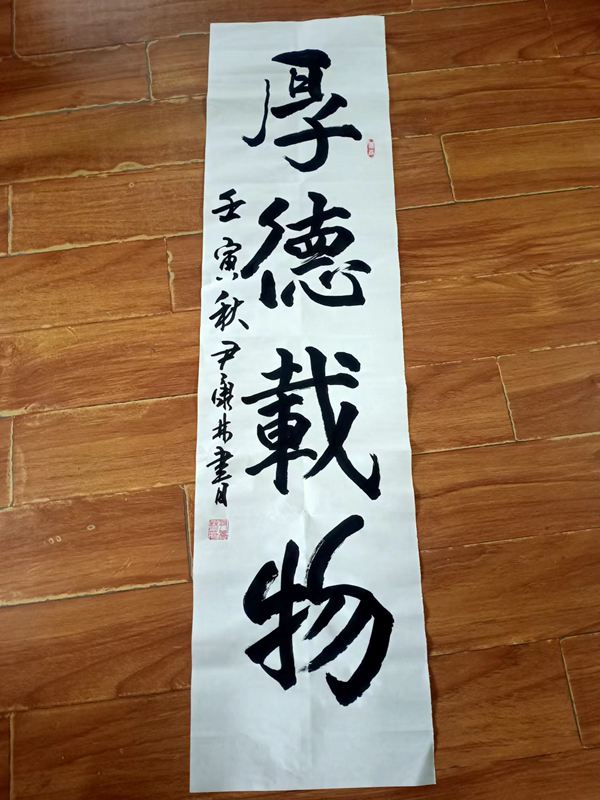 厚德載物
壬寅秋尹康林書